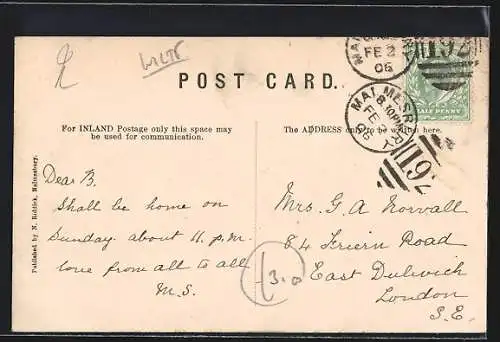 WILTS
POST CARD.
MALMESBURY
FE 2
06
492
HALF PENNY
MALMESBURY
8.30PM
FE 2
06
492
For INLAND Postage only this space may
be used for communication.
The ADDRESS only to be written here.
Published by N. Riddick, Malmesbury.
Dear B.
Shall be home on
Sunday about 11. p.m.
love from all to all
M.S.
Mrs. G. A Norvall
84 Frien Road
East Dulwich
London
S.E.